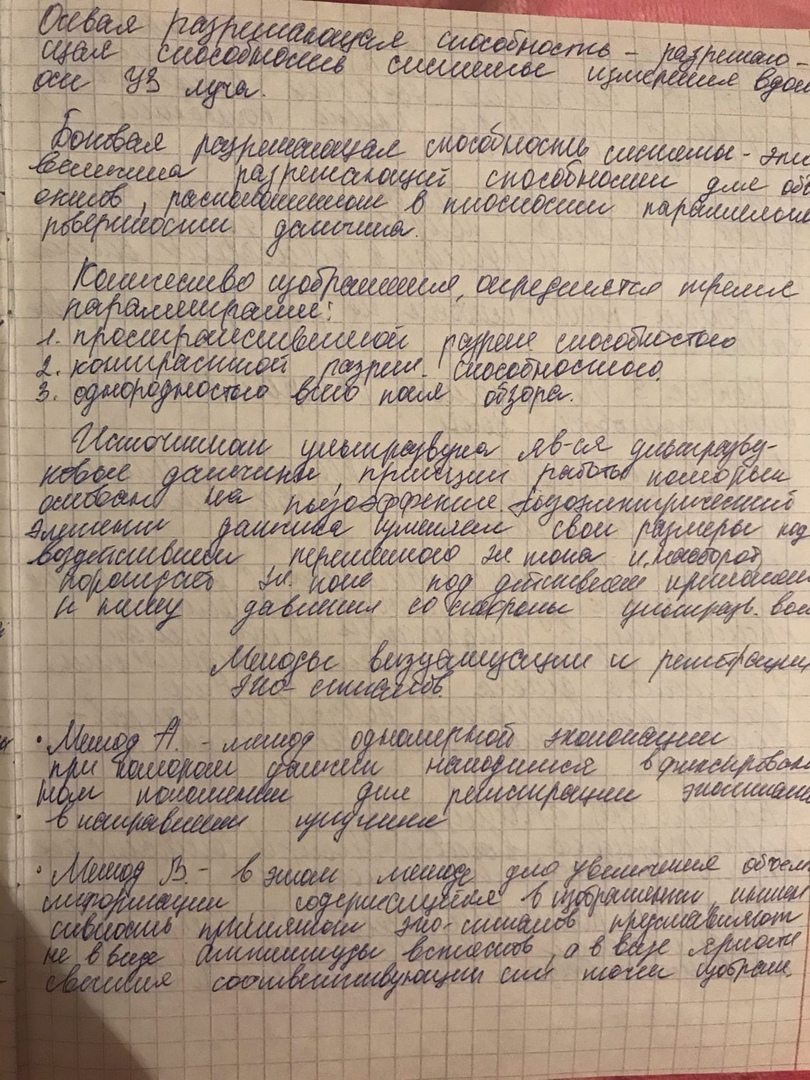 Осевая разрешающая способность – разрешаю-
щая способность системы измерения вдол
оси УЗ луча.
Боковая разрешающая способность системы – это
величина разрешающей способности для объ
ектов, расположенных в плоскости параллельно
поверхности датчика.
Качество изображения, определяется тремя
параметрами:
1. пространственной разреш способностью
2. контрастной разреш. способностью.
3. однородностью всего поля обзора.
Источником ультразвука яв-ся ультразву-
ковые датчики, принцип работы которых
основан на пьезоэффекте. пьезоэлектрический
элемент датчика изменяет свои размеры под
воздействием переменного эл тока и наоборот
порождает эл. поле под действием
к нему давления со стороны ультразв. вол
Методы визуализации и регистрации
эхо-сигналов.
• Метод А. – метод одномерной эхолокации
при котором датчик находится в фиксирован
ном положении для регистрации
в направлении
• Метод В. – в этом методе для увеличения объем
информации содержащейся в изображении, интен
сивность принятых эхо-сигналов представляют
не в виде амплитуды всплесков, а в виде яркости
свечения соответствующих им точек изображ.